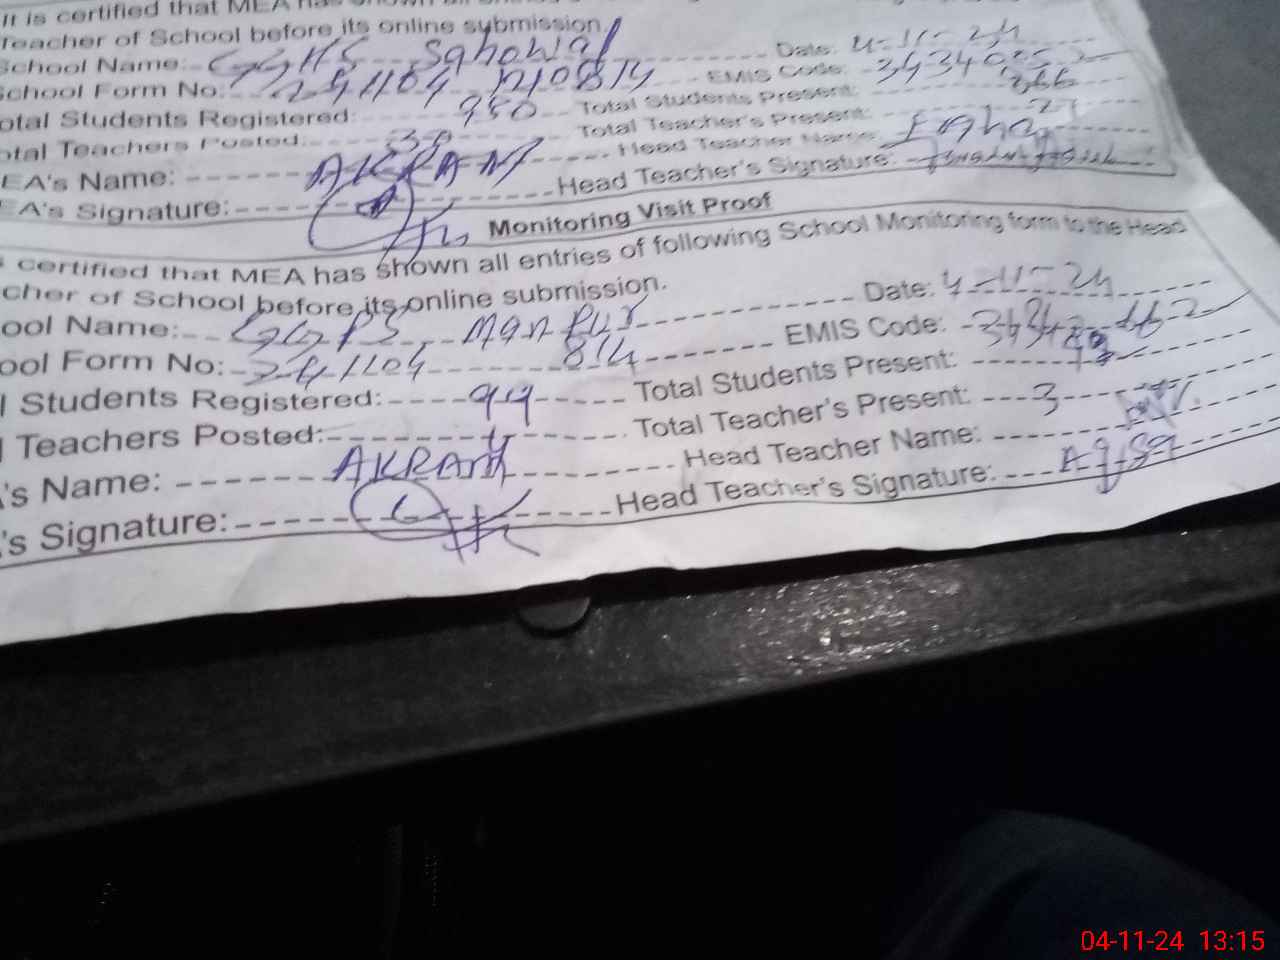 It is certified that MEA has shown all entries
Teacher of School before its online submission.
School Name: GGHS Sahowal Date: 4-11-24
School Form No: 241104 EMIS Code:
otal Students Registered: 950 Total Students Present: 866
otal Teachers Posted: 30 Total Teacher's Present: 27
EA's Name: AKRAM Head Teacher Name:
EA's Signature: Head Teacher's Signature:
Monitoring Visit Proof
certified that MEA has shown all entries of following School Monitoring form to the Head
cher of School before its online submission.
ool Name: GGPS Manpur Date: 4-11-24
ool Form No: 241104 814 EMIS Code:
l Students Registered: 99 Total Students Present:
l Teachers Posted: 4 Total Teacher's Present: 3
's Name: AKRAM Head Teacher Name:
's Signature: Head Teacher's Signature:
04-11-24 13:15